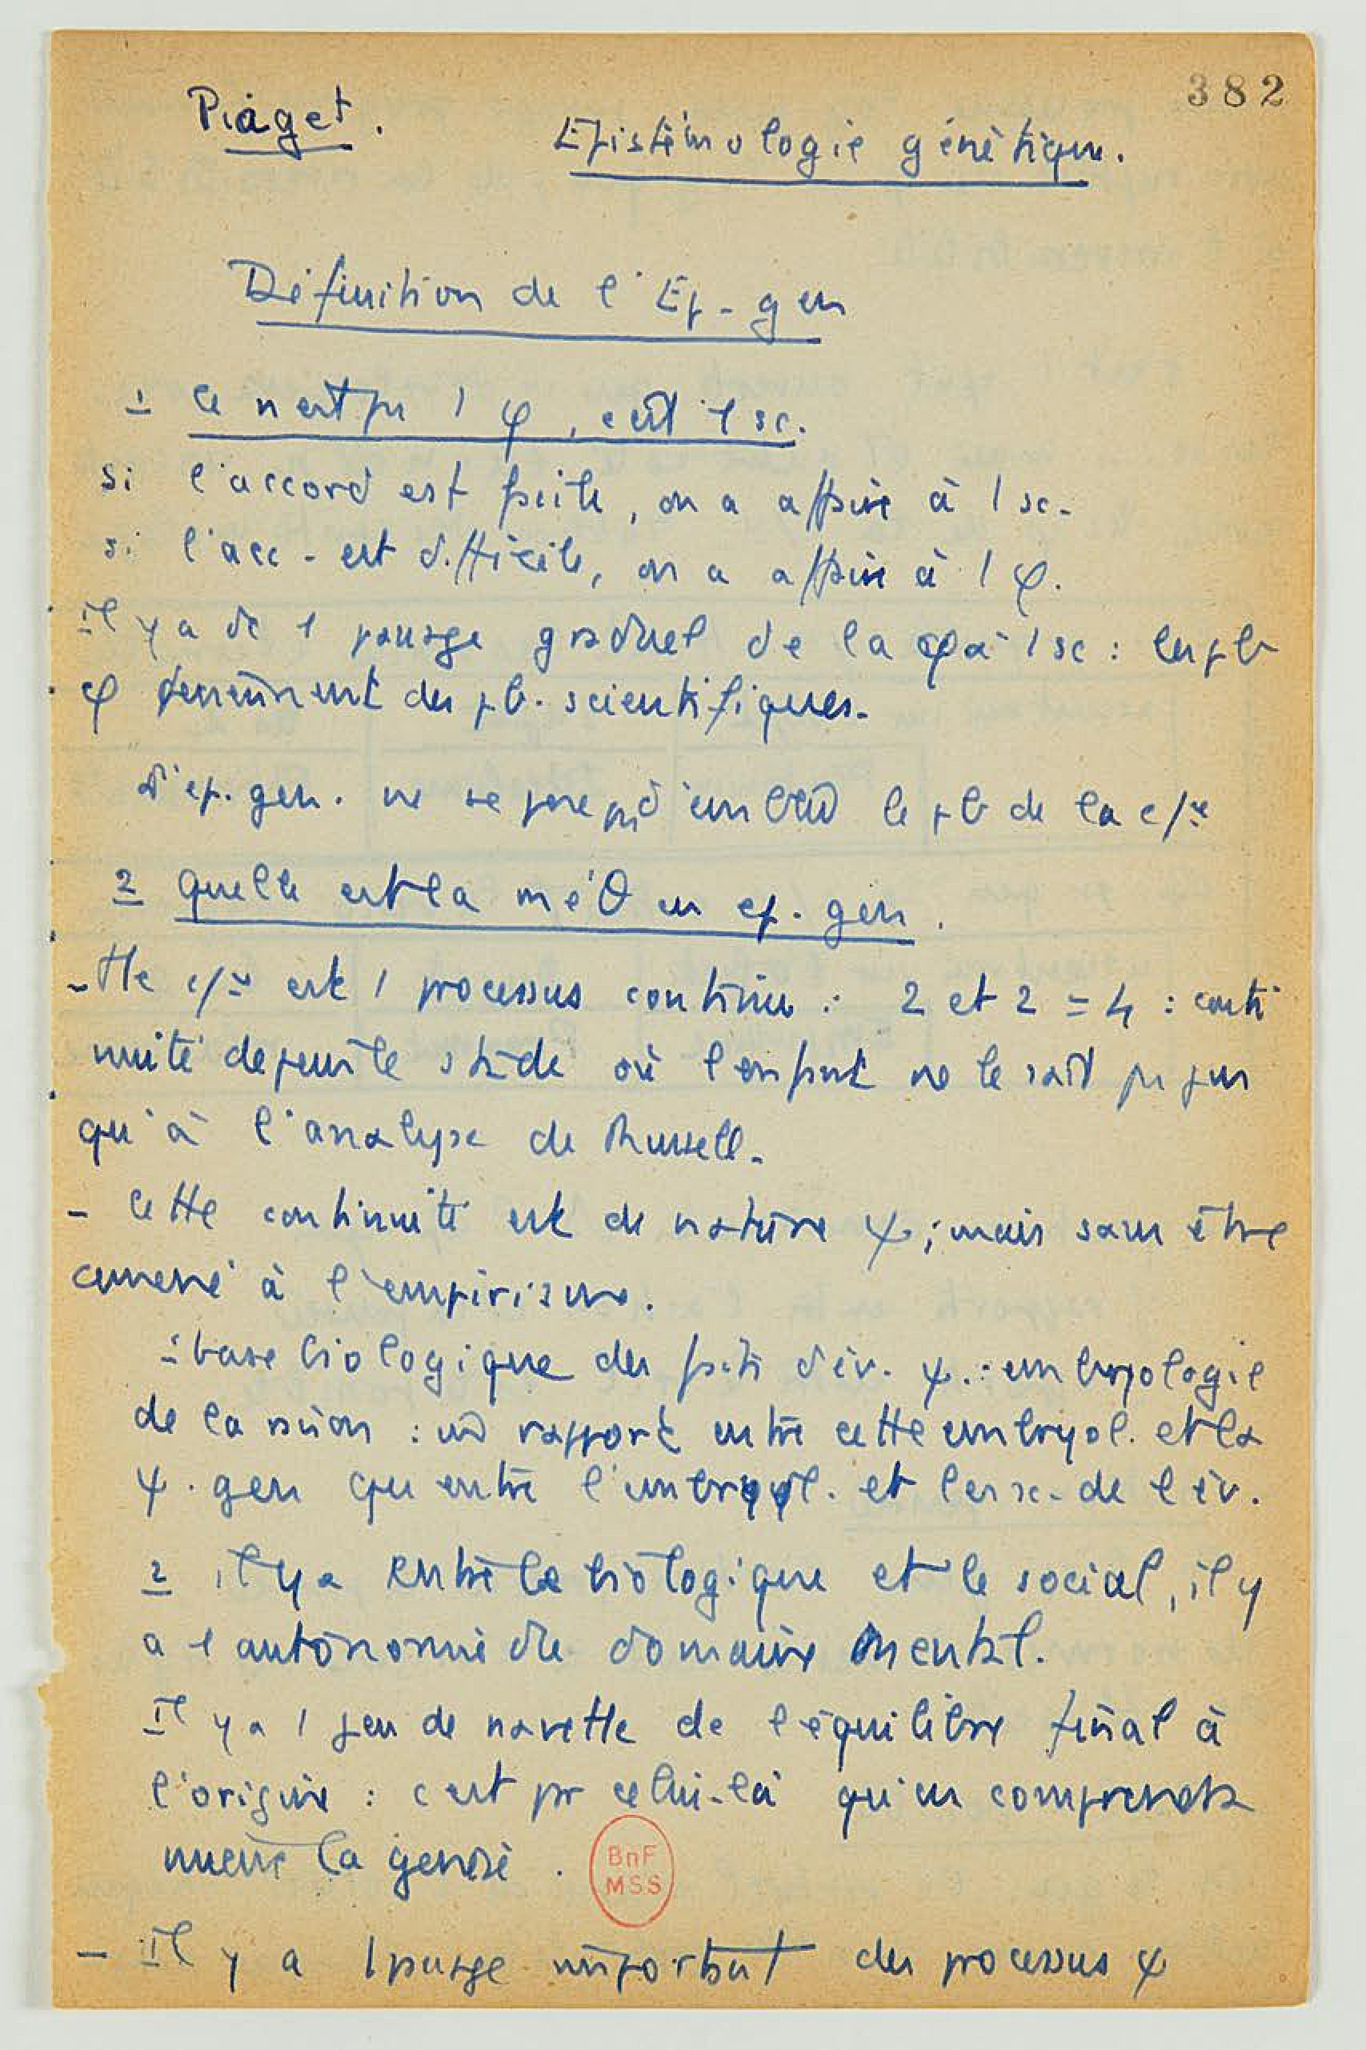 382
Piaget.
Epistémologie génétique.
Définition de l'Ep. gen
1 Ce n'est pas 1 φ, c'est 1 sc.
si l'accord est facile, on a affaire à 1 sc.
si l'acc. est difficile, on a affaire à 1 φ.
Il y a dc 1 passage graduel de la φ à 1 sc : les pb
φ deviennent des pb. scientifiques.
L'ep. gen. ne se pose pas d'emblée le pb de la c/ce
2 quelle est la méθ en ep. gen.
- Tte c/ce est 1 processus continu : 2 et 2 = 4 : conti
nuité depuis le stade où l'enfant ne le sait pas jus
qu'à l'analyse de Russell.
- Cette continuité est de nature ψ ; mais sans être
ramené à l'empirisme.
1 base biologique des faits d'ev. ψ. : embryologie
de la raison : mê rapport entre cette embryol. et la
ψ. gen qu'entre l'embryol. et les sc. de l'ev.
2 il y a entre le biologique et le social, il y
a 1 autonomie du domaine mental.
Il y a 1 jeu de navette de l'équilibre final à
l'origine : c'est par celui-là qu'on comprendra
mieux la genèse.
BnF
MSS
- Il y a 1 passage important des processus ψ